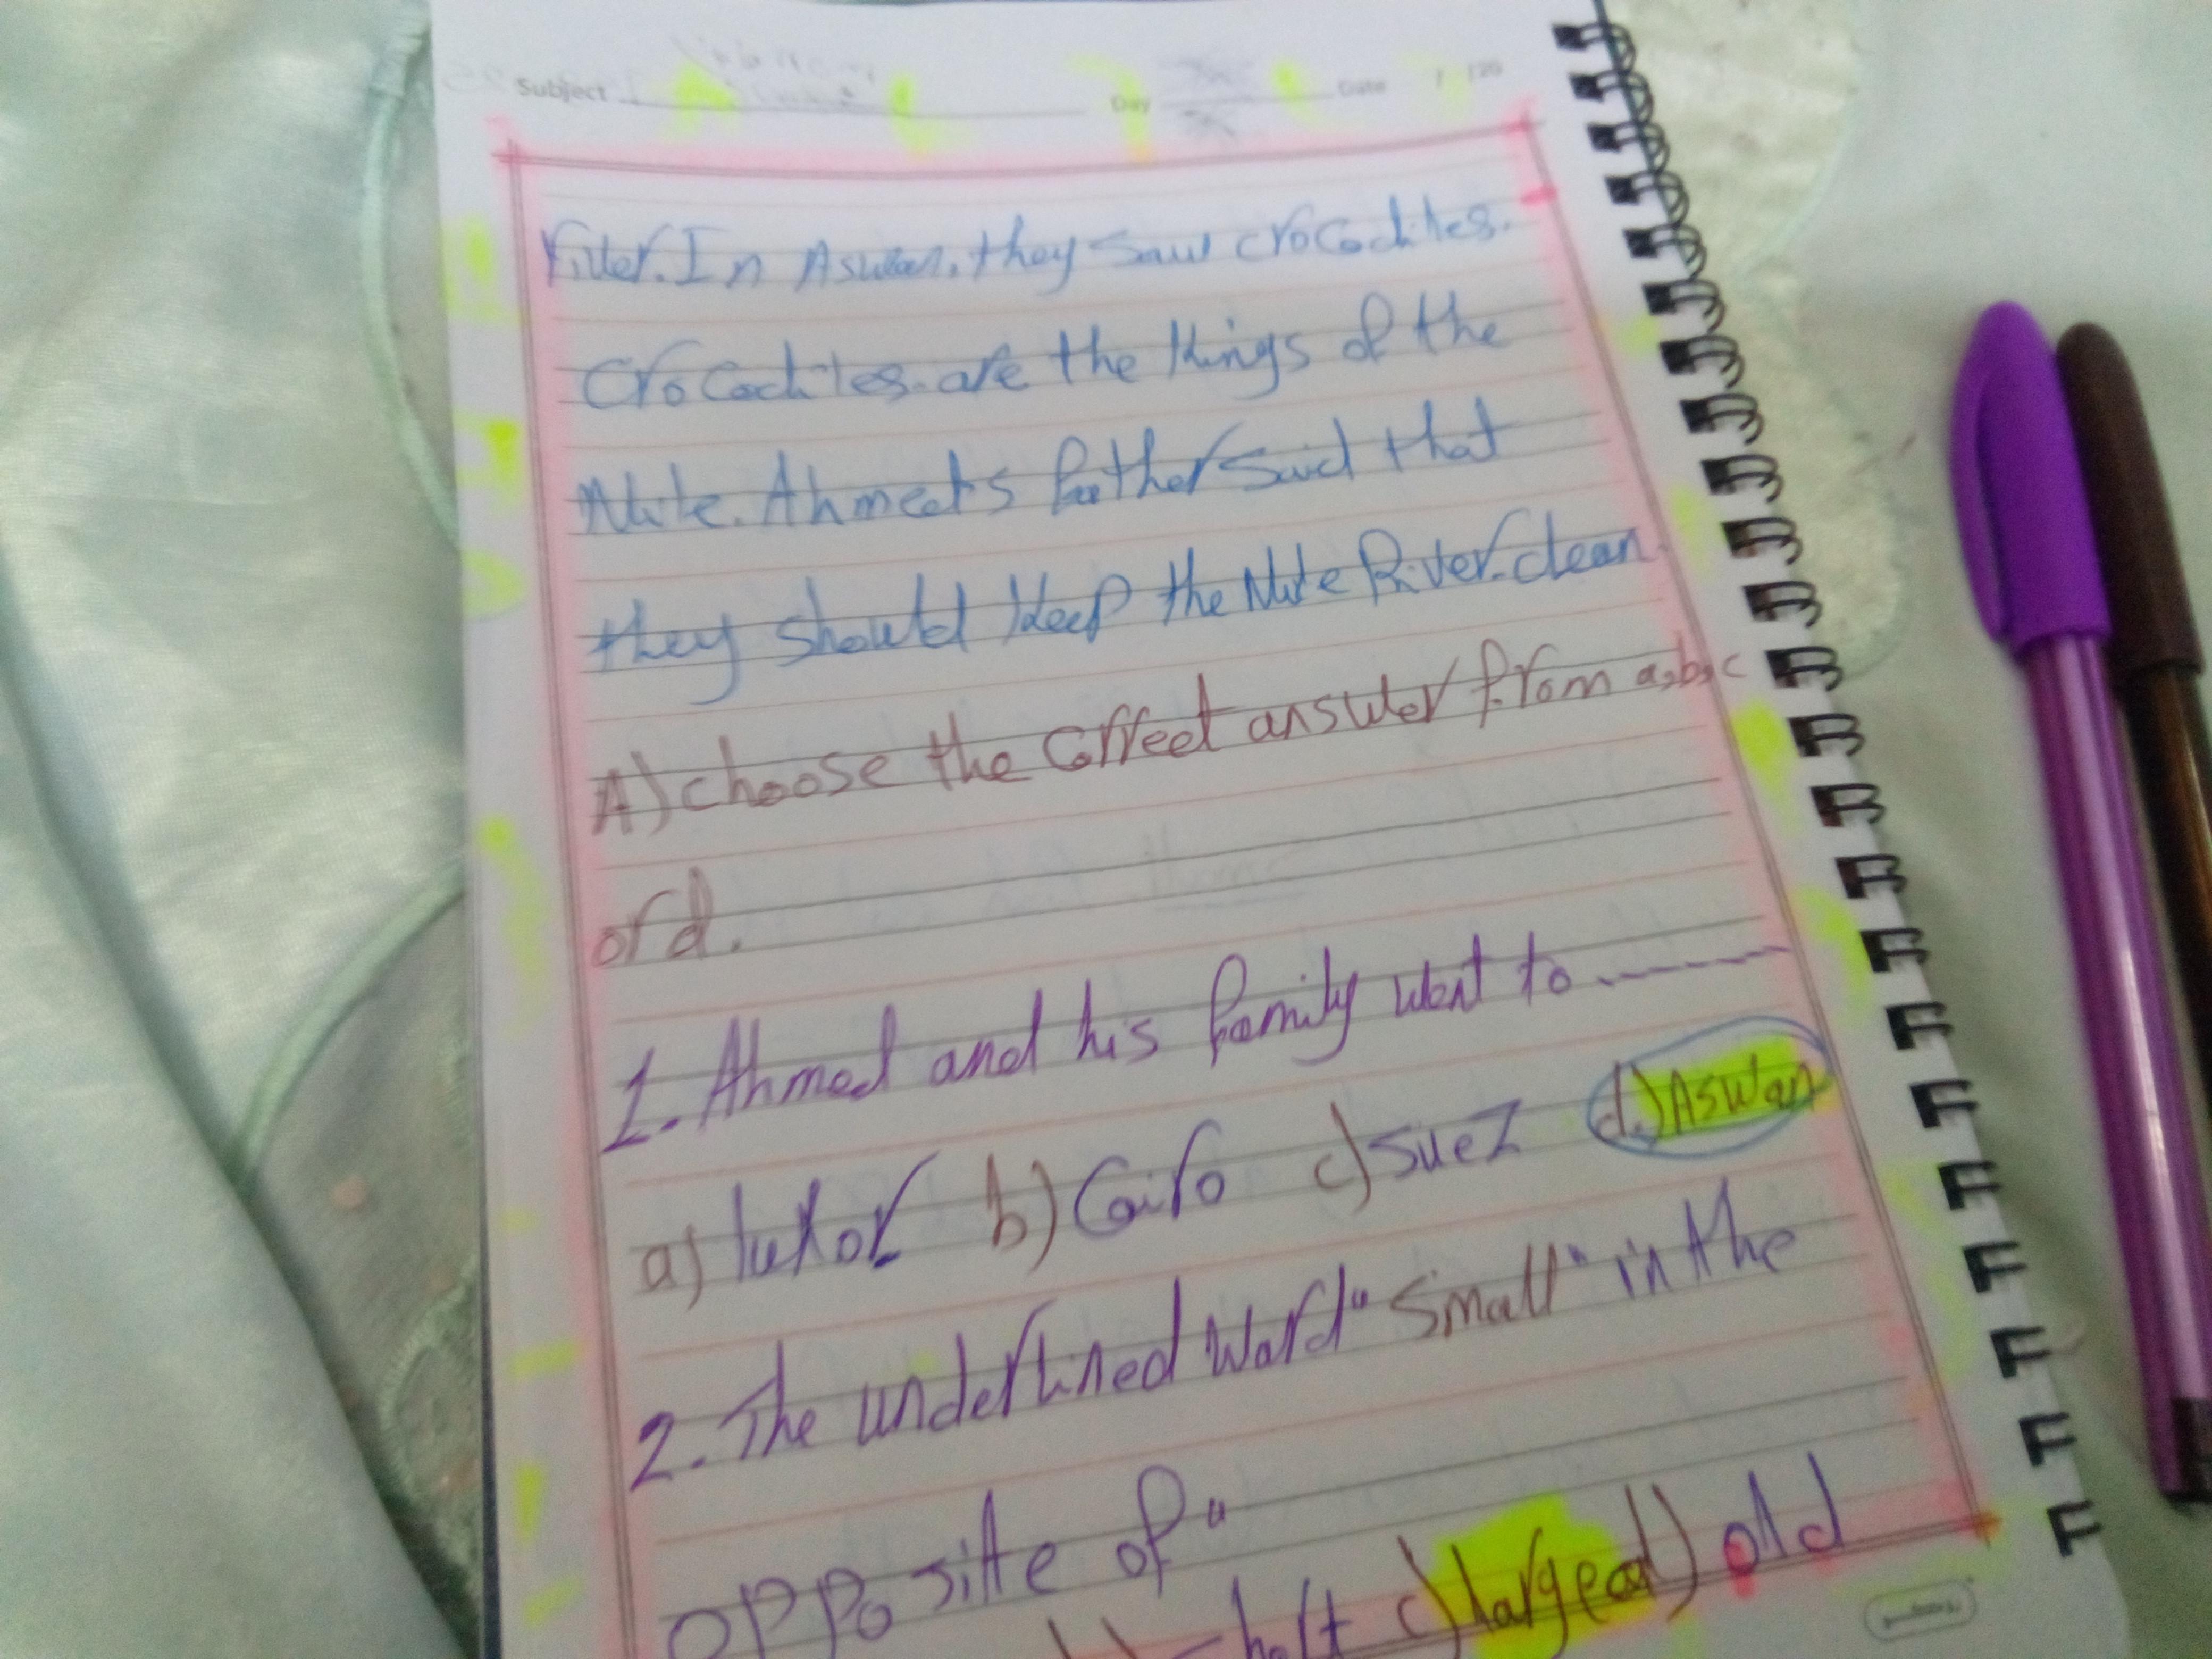 Subject Day Date / /20
River. In Aswan, they saw crocodiles.
crocodiles are the kings of the
Nile. Ahmed's father said that
they should keep the Nile River clean.
A) choose the correct answer from a,b,c
or d.
1. Ahmed and his family went to
a) luxor b) Cairo c) suez d.) Aswan
2. The underlined word "small" in the
opposite of "
c) large d) old